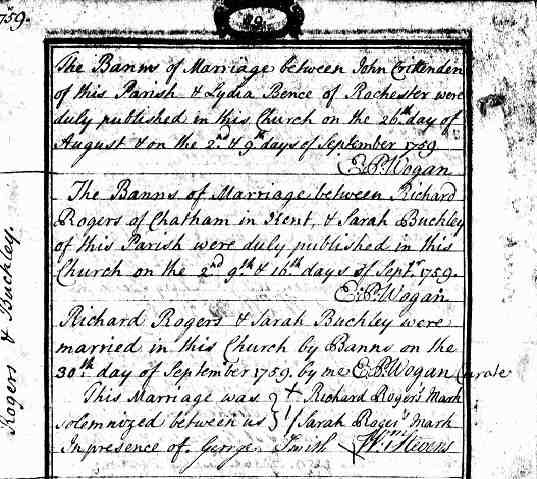 1759.
The Banns of Marriage between John Crittenden
of this Parish & Lydia Bence of Rochester were
duly published in this Church on the 26th day of
August & on the 2nd & 9th days of September 1759
E.P. Wogan
The Banns of Marriage between Richard
Rogers of Chatham in Kent, & Sarah Buckley
of this Parish were duly published in this
Church on the 2nd 9th & 16th days of Septr 1759.
E.P. Wogan
Richard Rogers & Sarah Buckley were
married in this Church by Banns on the
30th day of September 1759. by me E.P. Wogan Curate
This Marriage was } + Richard Roger's Mark
solemnized between us } / Sarah Roger's Mark
In presence of. George Smith Wm Stevens
Rogers & Buckley.